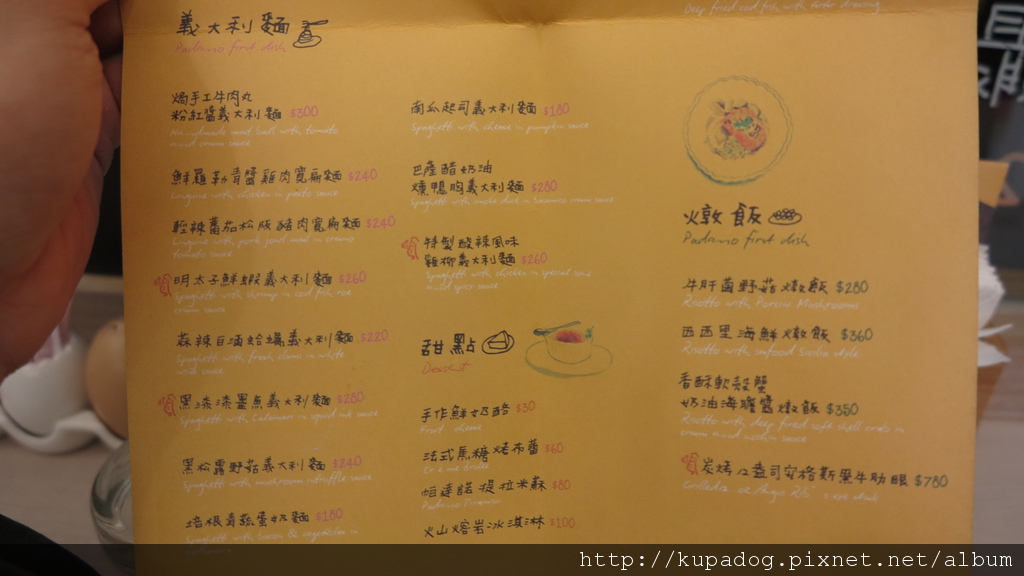 Deep fried cod fish with tartar dressing
義大利麵
Padrino first dish
焗手工牛肉丸
粉紅醬義大利麵 $300
Handmade meat ball with tomato
and cream sauce
鮮羅勒青醬雞肉寬扁麵 $240
Linguine with chicken in pesto sauce
輕辣蕃茄松阪豬肉寬扁麵 $240
Linguine with pork jowl meat in creamy
tomato sauce
明太子鮮蝦義大利麵 $260
Spaghetti with shrimp in cod fish roe
cream sauce
蒜辣白酒蛤蠣義大利麵 $220
Spaghetti with fresh clams in white
wine sauce
黑漆漆墨魚義大利麵 $280
Spaghetti with Calamari in squid ink sauce
黑松露野菇義大利麵 $240
Spaghetti with mushroom truffle sauce
培根青蔬蛋奶麵 $180
Spaghetti with bacon & vegetables in
南瓜起司義大利麵 $180
Spaghetti with cheese in pumpkin sauce
巴薩醋奶油
燻鴨胸義大利麵 $280
Spaghetti with smoke duck in balsamic cream sauce
特製酸辣風味
雞柳義大利麵 $260
Spaghetti with chicken in special sour
and spicy sauce
甜點
Dessert
手作鮮奶酪 $50
Fruit cheese
法式焦糖烤布蕾 $60
Creme brulee
帕達諾提拉米蘇 $80
Padrino Tiramisu
火山熔岩冰淇淋 $100
燉飯
Padrino first dish
牛肝菌野菇燉飯 $280
Risotto with Porcini Mushrooms
西西里海鮮燉飯 $360
Risotto with seafood Sicilia style
香酥軟殼蟹
奶油海膽醬燉飯 $350
Risotto with deep fried soft shell crab in
cream and urchin sauce
炭烤12盎司安格斯黑牛肋眼 $780
http://kupadog.pixnet.net/album